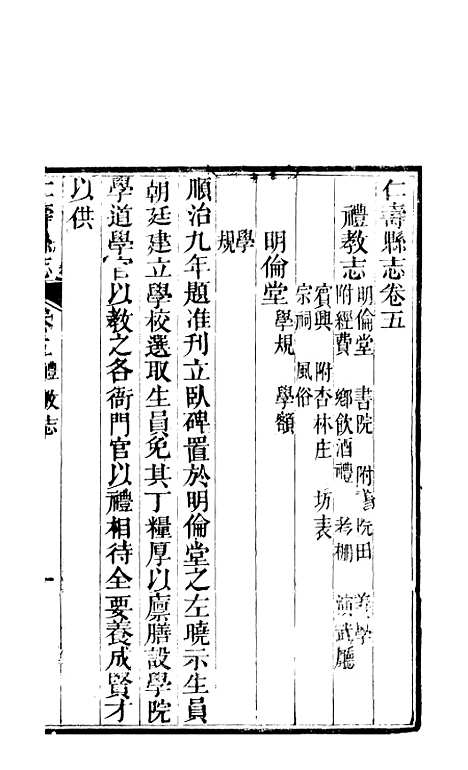 仁壽縣志卷五
禮教志
明倫堂 書院 附書院田 義學
附經費 鄉飲酒禮 考棚 演武廳
賓興 附杏林庄 坊表
宗祠 風俗
明倫堂 學規 學額
學規
順治九年題准刊立臥碑置於明倫堂之左曉示生員
朝廷建立學校選取生員免其丁糧厚以廪膳設學院
學道學官以教之各衙門官以禮相待全要養成賢才
以供
仁壽縣志 卷五禮教志 一